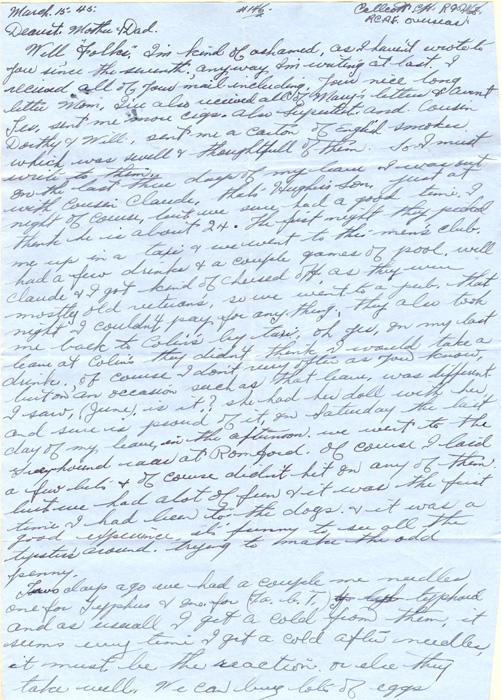 March. 15-45. #146 Collcott. C.H. R
R.C.A.F. Overseas
Dearest. Mother & Dad.
Well Folks, I'm kind of ashamed, as I haven't wrote to
you since the seventh, anyway, I'm writing at last. I
received all of your mail including, your nice long
letter Mom, I've also received all of Mary's letters & Aunt
sent me more cigs. also Superster. and Cousin
Dorthy & Will, sent me a carton of English smokes
which was swell & thoughtfull of them. So I must
write to them.
On the last three days of my leave I was out
with Cousin Claude, thats Hughie's son, just at
night of course, but we sure had a good time. I
think he is about 24. The first night they picked
me up in a taxi & we went to this men's club.
had a few drinks & a couple games of pool. well
Claude & I got kind of cheesed off as they were
mostly old veterans, so we went to a pub. that
night I couldn't pay, for any thing. they also took
me back to Colin's by taxi, oh yes, on my last
leave at Colin's they didn't think I would take a
drink. Of course I don't very often as you know,
but on an occasion such as that leave, was different.
I saw, (June, is it)? she had her doll with her,
and sure is proud of it, On Saturday the last
day of my leave, in the afternoon. we went to the
Greyhound races at Romford. Of course I laid
a few bets & of course didn't hit on any of them
but we had alot of fun & it was the first
time I had been to the dogs. & it was a
good experience, its funny to see all the
tipsters around. trying to make the odd
penny.
Two days ago we had a couple me needles
one for Typhus & one for (Ta. b. T.) typhoid
and as usuall I get a cold from them, it
seems every time I get a cold after needles,
it must be the reaction. or else they
take well. We can buy lots of eggs